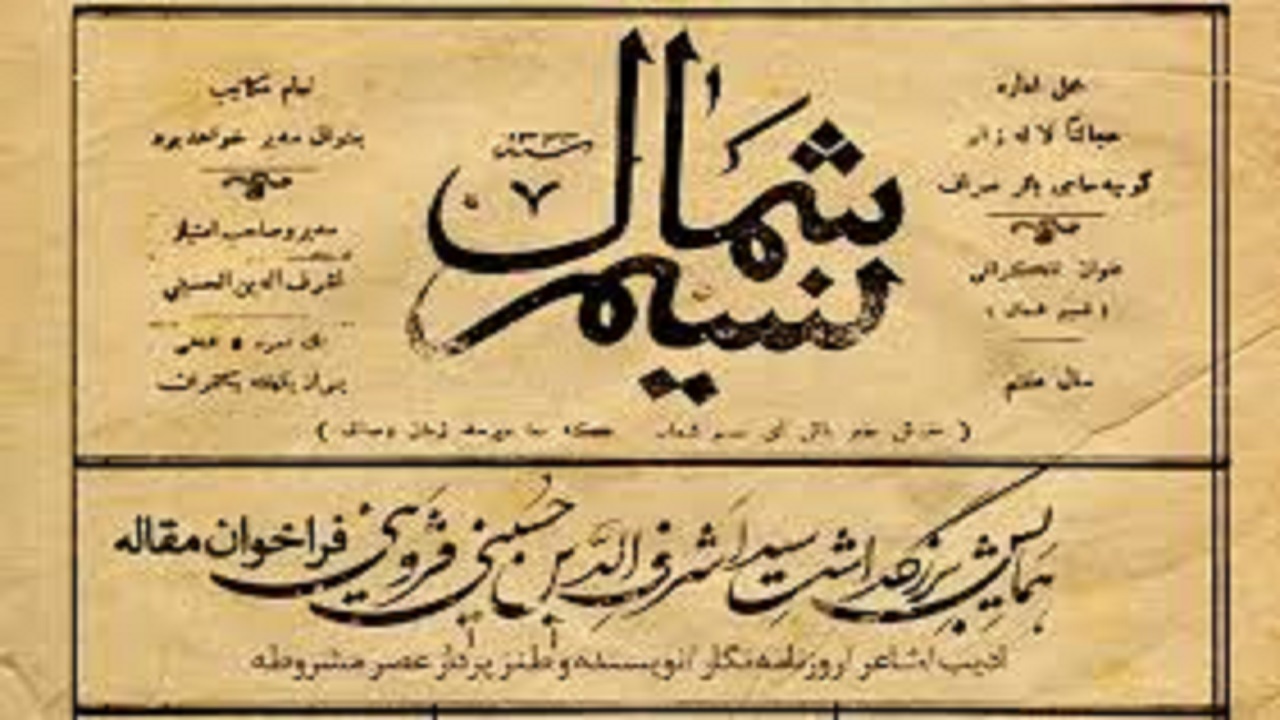 محل اداره
عجالتاً لاله زار
کوچه حاجی باقر صراف
عنوان تلگرافی
( نسیم شمال )
سال هفتم
نسیم شمال
سنه ۱۳۳۳
۷
تمام مکاتیب
بعنوان مدیر خواهد بود
مدیر و صاحب امتیاز
اشرف الدین الحسینی
( خوش خبر باش ای نسیم شمال
همایش بزرگداشت سید اشرف الدین حسینی قزوینی
فراخوان مقاله
ادیب / شاعر / روزنامه نگار / نویسنده و طنز پرداز عصر مشروطه